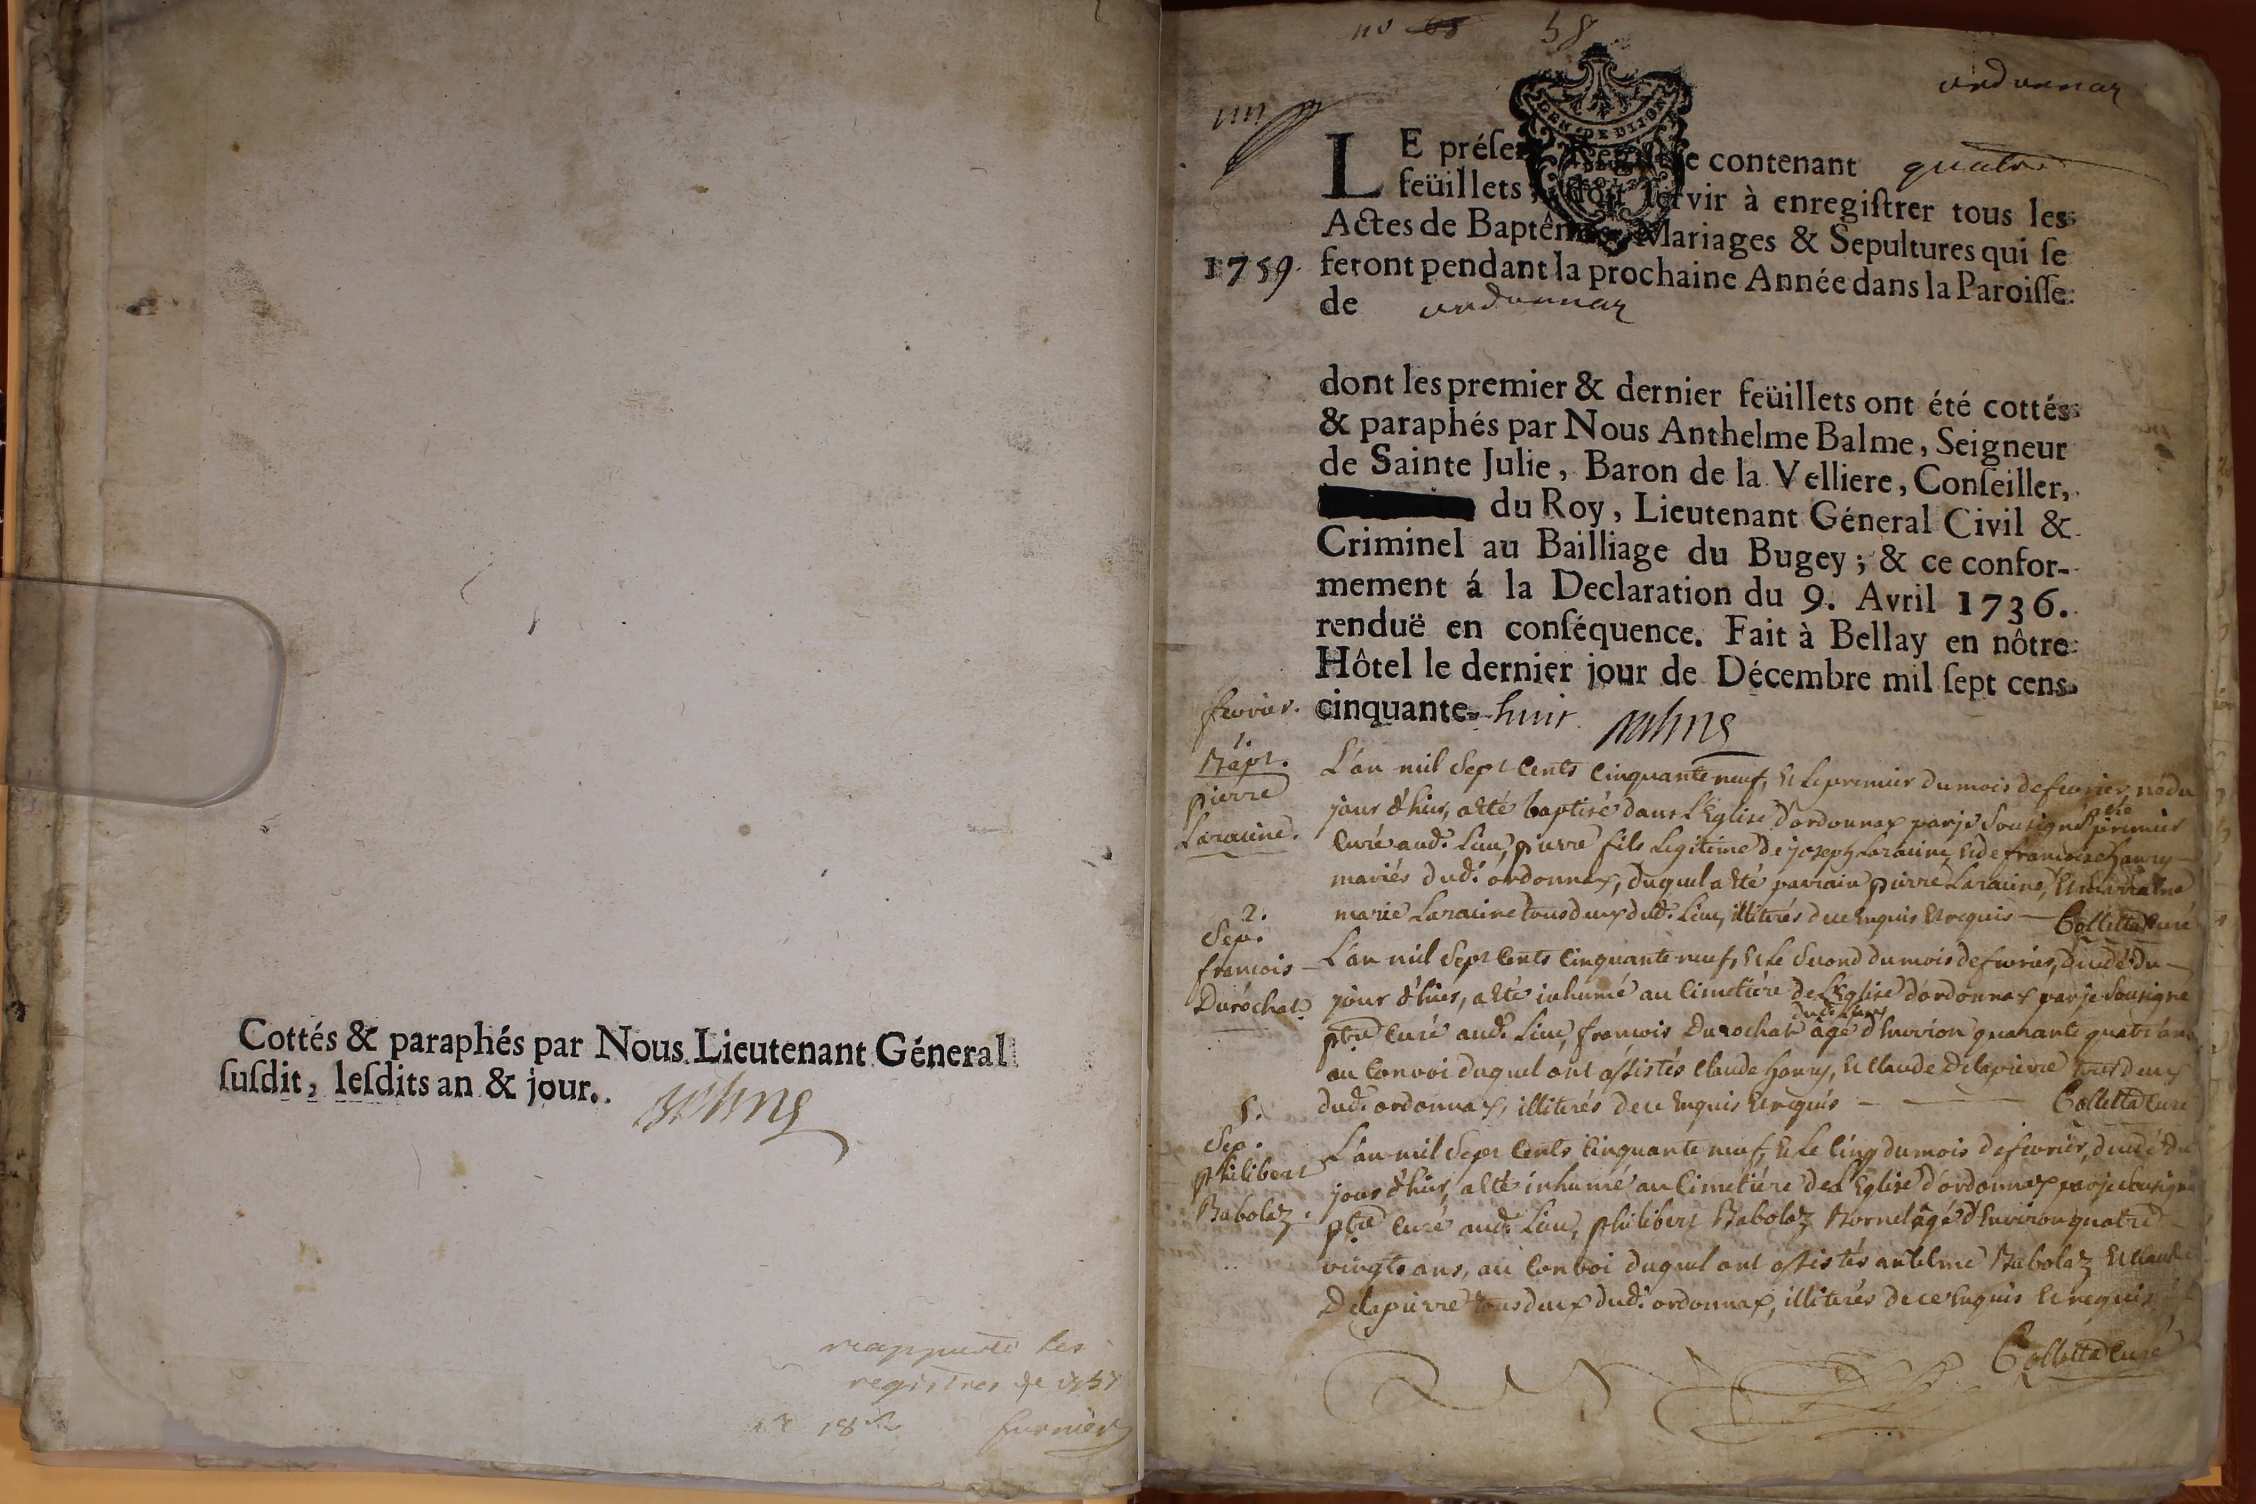 Cottés & paraphés par Nous Lieutenant Géneral
susdit, lesdits an & jour.
registres de 1757
no 68 58
ordonnaz
GEN. DE DIJON
LE présent Registre contenant quatre
feüillets, doit servir à enregistrer tous les
Actes de Baptême, Mariages & Sepultures qui se
1759. feront pendant la prochaine Année dans la Paroisse
de ordonnaz
dont les premier & dernier feüillets ont été cottés
& paraphés par Nous Anthelme Balme, Seigneur
de Sainte Julie, Baron de la Velliere, Conseiller,
du Roy, Lieutenant Géneral Civil &
Criminel au Bailliage du Bugey; & ce confor-
mement á la Declaration du 9. Avril 1736.
renduë en conséquence. Fait à Bellay en nôtre
Hôtel le dernier jour de Décembre mil sept cens
cinquante-huit Balme
fevrier.
1.
Bapt.
pierre
Laracine.
L'an mil Sept Cents Cinquante neuf, et le premier du mois de fevrier, né du
jour d'hier, a été baptisé dans l'Eglise d'ordonnax par je Sousigné ptre premier
Curé aud. Lieu, pierre fils Legitime de joseph Laracine et de francoise hanry
mariés dud. ordonnax, duquel a été parrain pierre Laracine, et marraine
marie Laracine tous deux dud. Lieu, illiterés de ce Enquis et requis — Colletta Curé
2.
Sep.
francois
Durochat.
L'an mil Sept Cents Cinquante neuf, et le Second du mois de fevrier, decedé du
jour d'hier, a été inhumé au Cimetière de l'Eglise d'ordonnax par je Sousigné
ptre Curé aud. Lieu, francois Durochat dud. Lieu âgé d'Environ quarante quatre ans
au Convoi duquel ont assistés Claude hanry, et Claude Delapierre tous deux
dud. ordonnax, illiterés de ce Enquis et requis — Colletta Curé
5.
Sep.
philibert
Babolaz.
L'an mil Sept Cents Cinquante neuf, et le Cinq du mois de fevrier, decedé du
jour d'hier, a été inhumé au Cimetière de l'Eglise d'ordonnax par je Sousigné
ptre Curé aud. Lieu, philibert Babolaz Bornel âgé d'Environ quatre
vingts ans, au Convoi duquel ont assistés antelme Babolaz et Claude
Delapierre tous deux dud. ordonnax, illiterés de ce Enquis et requis
Colletta Curé